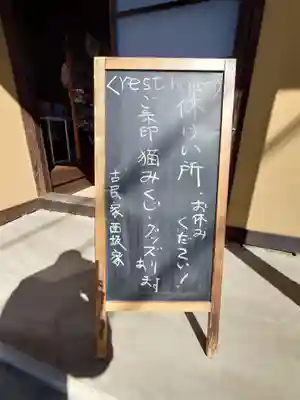 <rest house>
休けい所・お休み
ください!
ご朱印 猫みくじ・グッズ
あります
古民家 西坂家